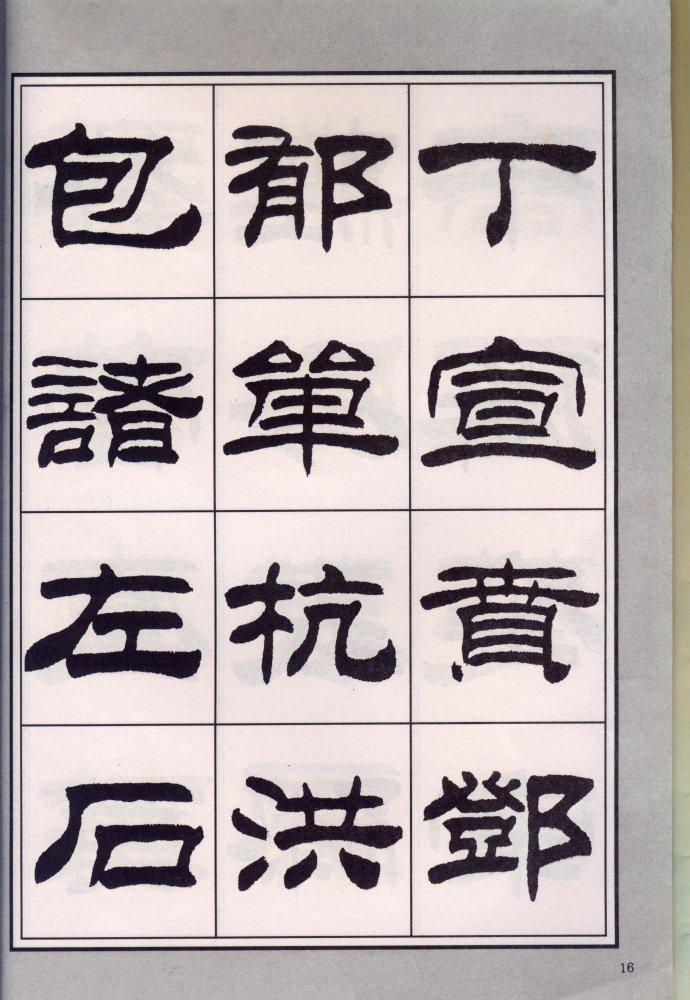 丁宣賁鄧
郁單杭洪
包諸左石
16